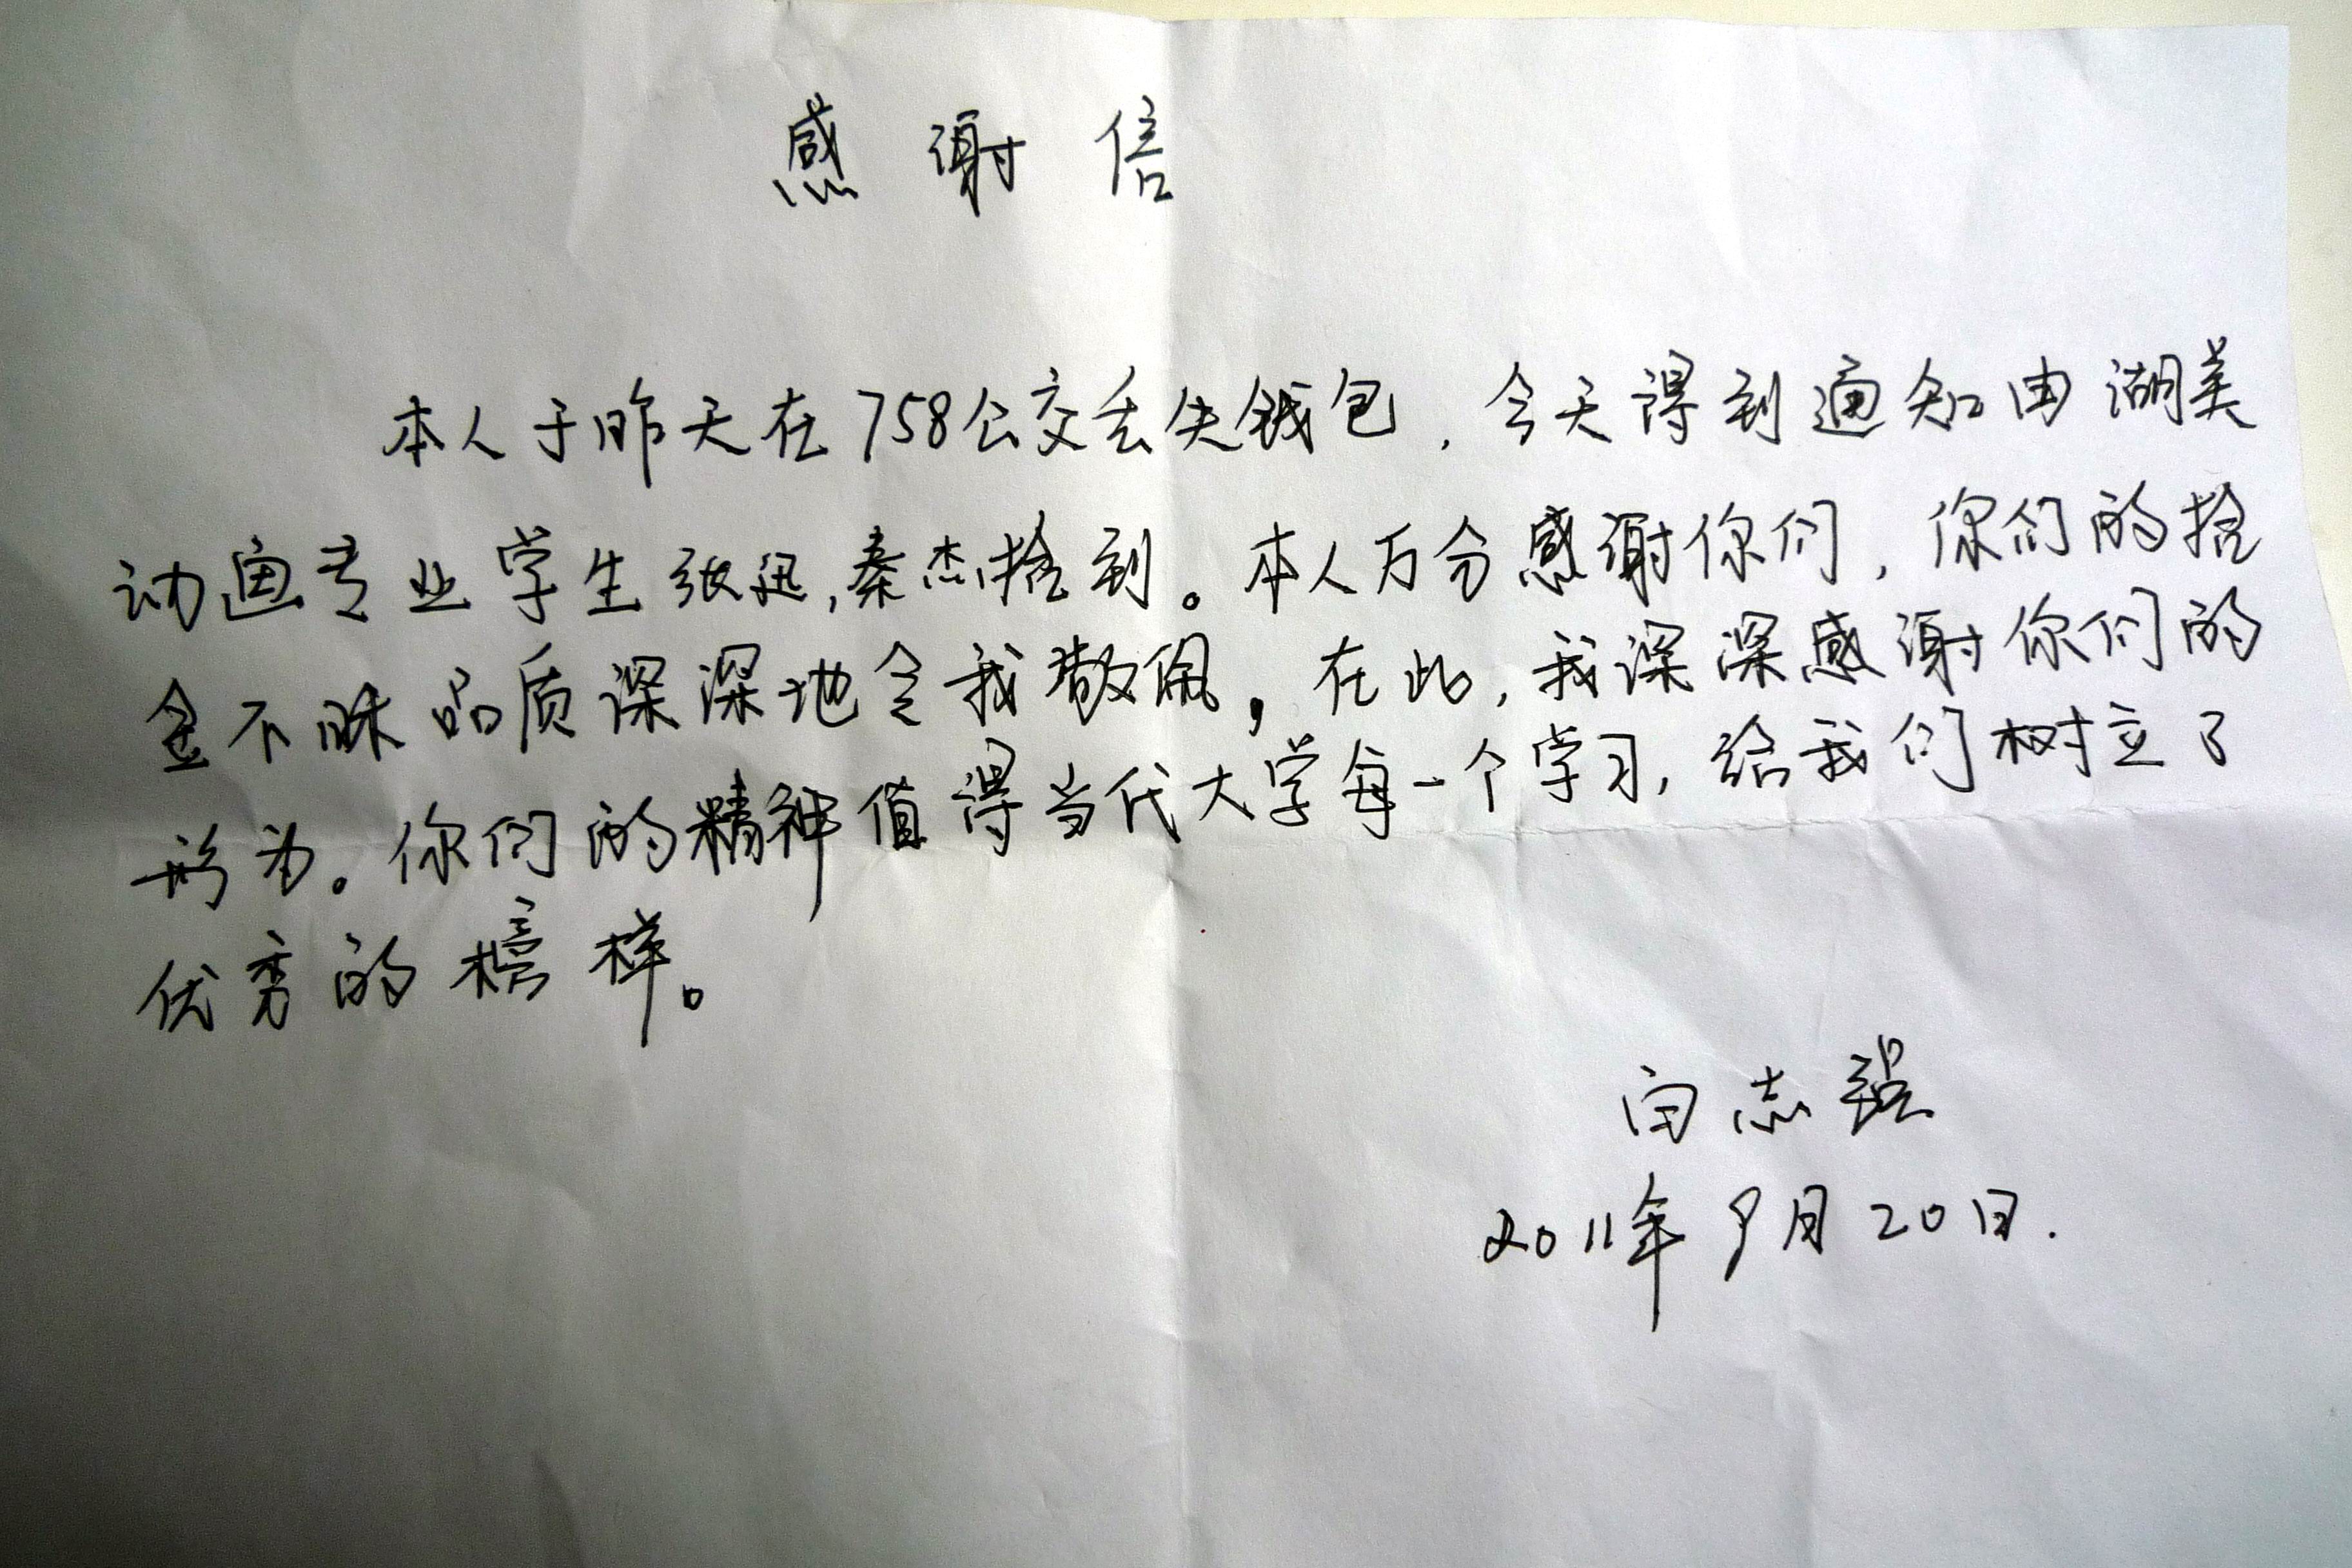 感谢信
本人于昨天在758公交丢失钱包,今天得到通知由湖美
动画专业学生张迅,秦杰捡到。本人万分感谢你们,你们的拾
金不昧品质深深地令我敬佩,在此,我深深感谢你们的
形为。你们的精神值得当代大学每一个学习,给我们树立了
优秀的榜样。
白志强
2011年9月20日.